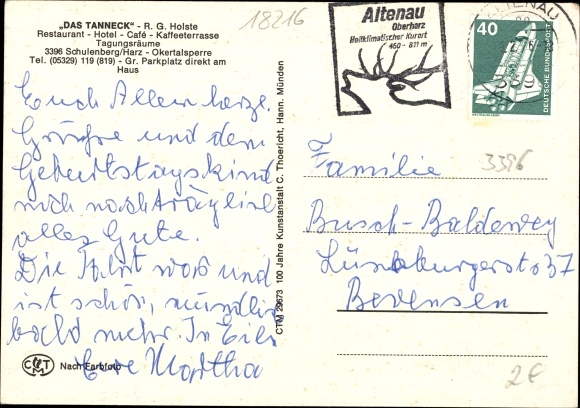 18216
"DAS TANNECK" - R. G. Holste
Restaurant - Hotel - Café - Kaffeeterrasse
Tagungsräume
3396 Schulenberg/Harz - Okertalsperre
Tel. (05329) 119 (819) - Gr. Parkplatz direkt am
Haus
Euch Allen herze.
Grüße und dem
Geburtstagskind
nachträglich
alles Gute.
Die Fahrt war und
ist schön, mündlich
bald mehr. In Eile
Eure Martha
CMT
Nach Farbfoto
CTM 29673 100 Jahre Kunstanstalt C. Thoericht, Hann. Münden
Altenau
Oberharz
Heilklimatischer Kurort
450 - 811 m
ALTENAU
40
DEUTSCHE BUNDESPOST
3396
Familie
Busch-Baldewey
Lüneburgerstr 37
Bevensen
2€